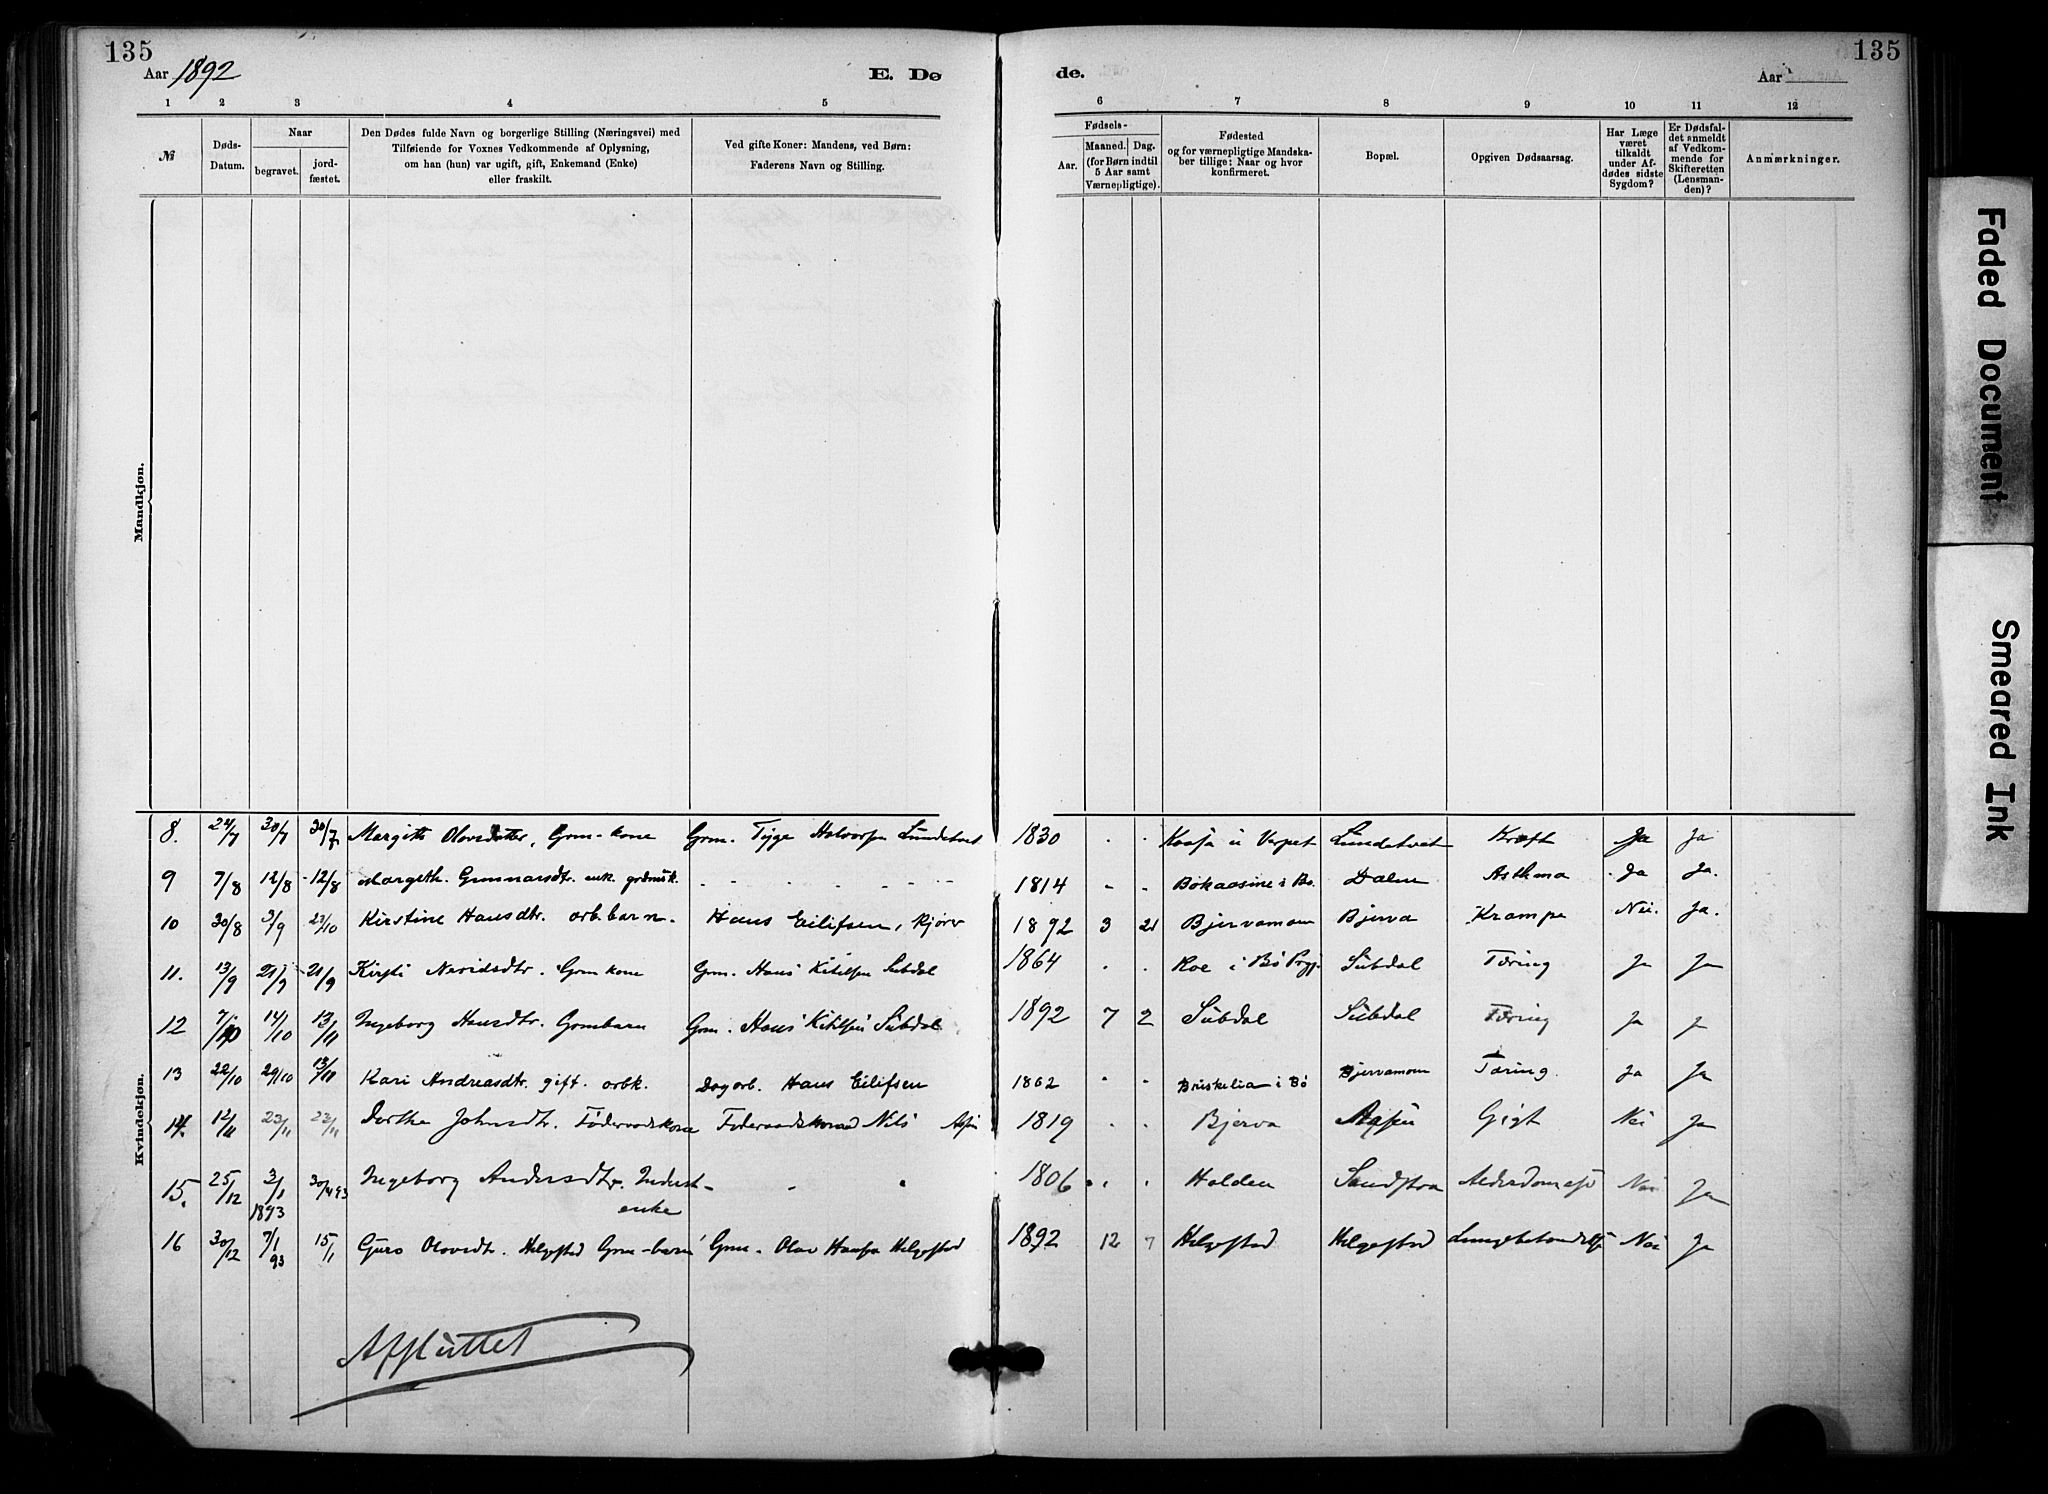 135
135
Aar 1892
E. Dø
de.
Aar
1 2 3 4 5 6 7 8 9 10 11 12
№
Døds-
Datum.
Naar
begravet.
jord-
fæstet.
Den Dødes fulde Navn og borgerlige Stilling (Næringsvei) med
Tilføiende for Voxnes Vedkommende af Oplysning,
om han (hun) var ugift, gift, Enkemand (Enke)
eller fraskilt.
Ved gifte Koner: Mandens, ved Børn:
Faderens Navn og Stilling.
Fødsels-
Aar.
Maaned.
Dag.
(for Børn indtil
5 Aar samt
Værnepligtige).
Fødested
og for værnepligtige Mandska-
ber tillige: Naar og hvor
konfirmeret.
Bopæl.
Opgiven Dødsaarsag.
Har Læge
været
tilkaldt
under Af-
dødes sidste
Sygdom?
Er Dødsfal-
det anmeldt
af Vedkom-
mende for
Skifteretten
(Lensman-
den)?
Anmærkninger.
Mandkjøn.
Kvindekjøn.
8. 24/7 30/7 30/7 Margith Olovsdatter, Grm-kone Grm. Tjge Halvorsen Lundetvet 1830 Kaasa i Lundetvet Kræft Ja Ja
9 7/8 12/8 12/8 Margeth. Gunnarsdtr. enk. 1814 Bokaasine i Bø. Dalen Asthma Ja Ja.
10 30/8 3/9 23/10 Kirstine Hansdtr. arb.barn. Hans Eilifsen, kjörer 1892 3 21 Bjervamoen Bjerva Krampe Nei. Ja.
11. 13/9 21/9 21/9 Kirsti Neridsdtr. Grmkone Grm. Hans Kittilsen Sübdal 1864 Roe i Bö Prgj. Sübdal Tæring Ja Ja
12 7/10 14/10 13/11 Ingeborg Hansdtr. Grmbarn Grm. Hans Kittilsen Sübdal 1892 7 2 Sübdal Sübdal Tæring Ja Ja
13 22/10 29/10 13/11 Kari Andreasdtr. gift. arbk. Dagarb. Hans Eilifsen 1862 Bruskelia i Bö Bjervamoen Tæring. Ja Ja
14. 12/11 23/11 23/11 Dorthe Johnsdtr. Föderaadskone Föderaadsmand Nils Aasen 1819 Bjerva Aasen Gigt Nei Ja
15. 25/12 3/1 1893 30/4 93 Ingeborg Andersdtr. Inderst-
enke 1806 Holden Sandstaa Nei Ja
16 30/12 7/1 93 15/1 Guro Olovsdtr. Helgestad Grm-barn Grm. Olav Hansen Helgestad 1892 12 7 Helgestad Helgestad Nei Ja
Afsluttet
Faded Document
Smeared Ink